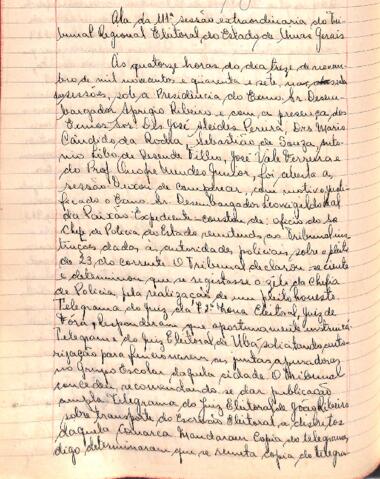 Ata da 111ª sessão extraordinaria do Tri-
bunal Regional Eleitoral do Estado de Minas Gerais
Às quatorse horas do dia treze de novem-
bro de mil novecentos e quarenta e sete, na sala
sessões, sob a Presidência do Exmo. Sr. Desem-
bargador Aprigio Ribeiro e com a presença dos
Exmos Srs. Drs José Alcides Pereira, Drs Mario
Cândido da Rocha, Sebastião de Souza, Anto-
nio Lobo de Resende Filho, José Vale Ferreira e
do Prof. Onofre Mendes Junior, foi aberta a
sessão. Deixou de comparecer, com motivo justi-
ficado o Exmo Sr. Desembargador Leovigildo Leal
da Paixão. Expediente constou de: oficio do Sr
Chefe de Policia do Estado remetendo ao Tribunal ins-
truções dadas à autoridades policiais, sobre o pleito
de 23 do corrente. O Tribunal declarou-se ciente
e determinou que se registasse o zêlo da Chefia
de Policia, pela realização de um pleito honesto.
Telegrama do Juiz da Zona Eleitoral, Juiz de
Fóra, Responderam que oportunamente
Telegrama do Juiz Eleitoral de Ubá, solicitando auto-
rização para funcionarem as juntas apuradoras
no Grupo Escolar daquela cidade. O Tribunal
concedeu, recomendando se dar publicação
ampla. Telegrama do Juiz Eleitoral de João Ribeiro
sobre transporte do Escrivão Eleitoral a distritos
daquela Comarca. Mandaram Copia do telegrama,
digo determinaram que se remeta copia do telegra-